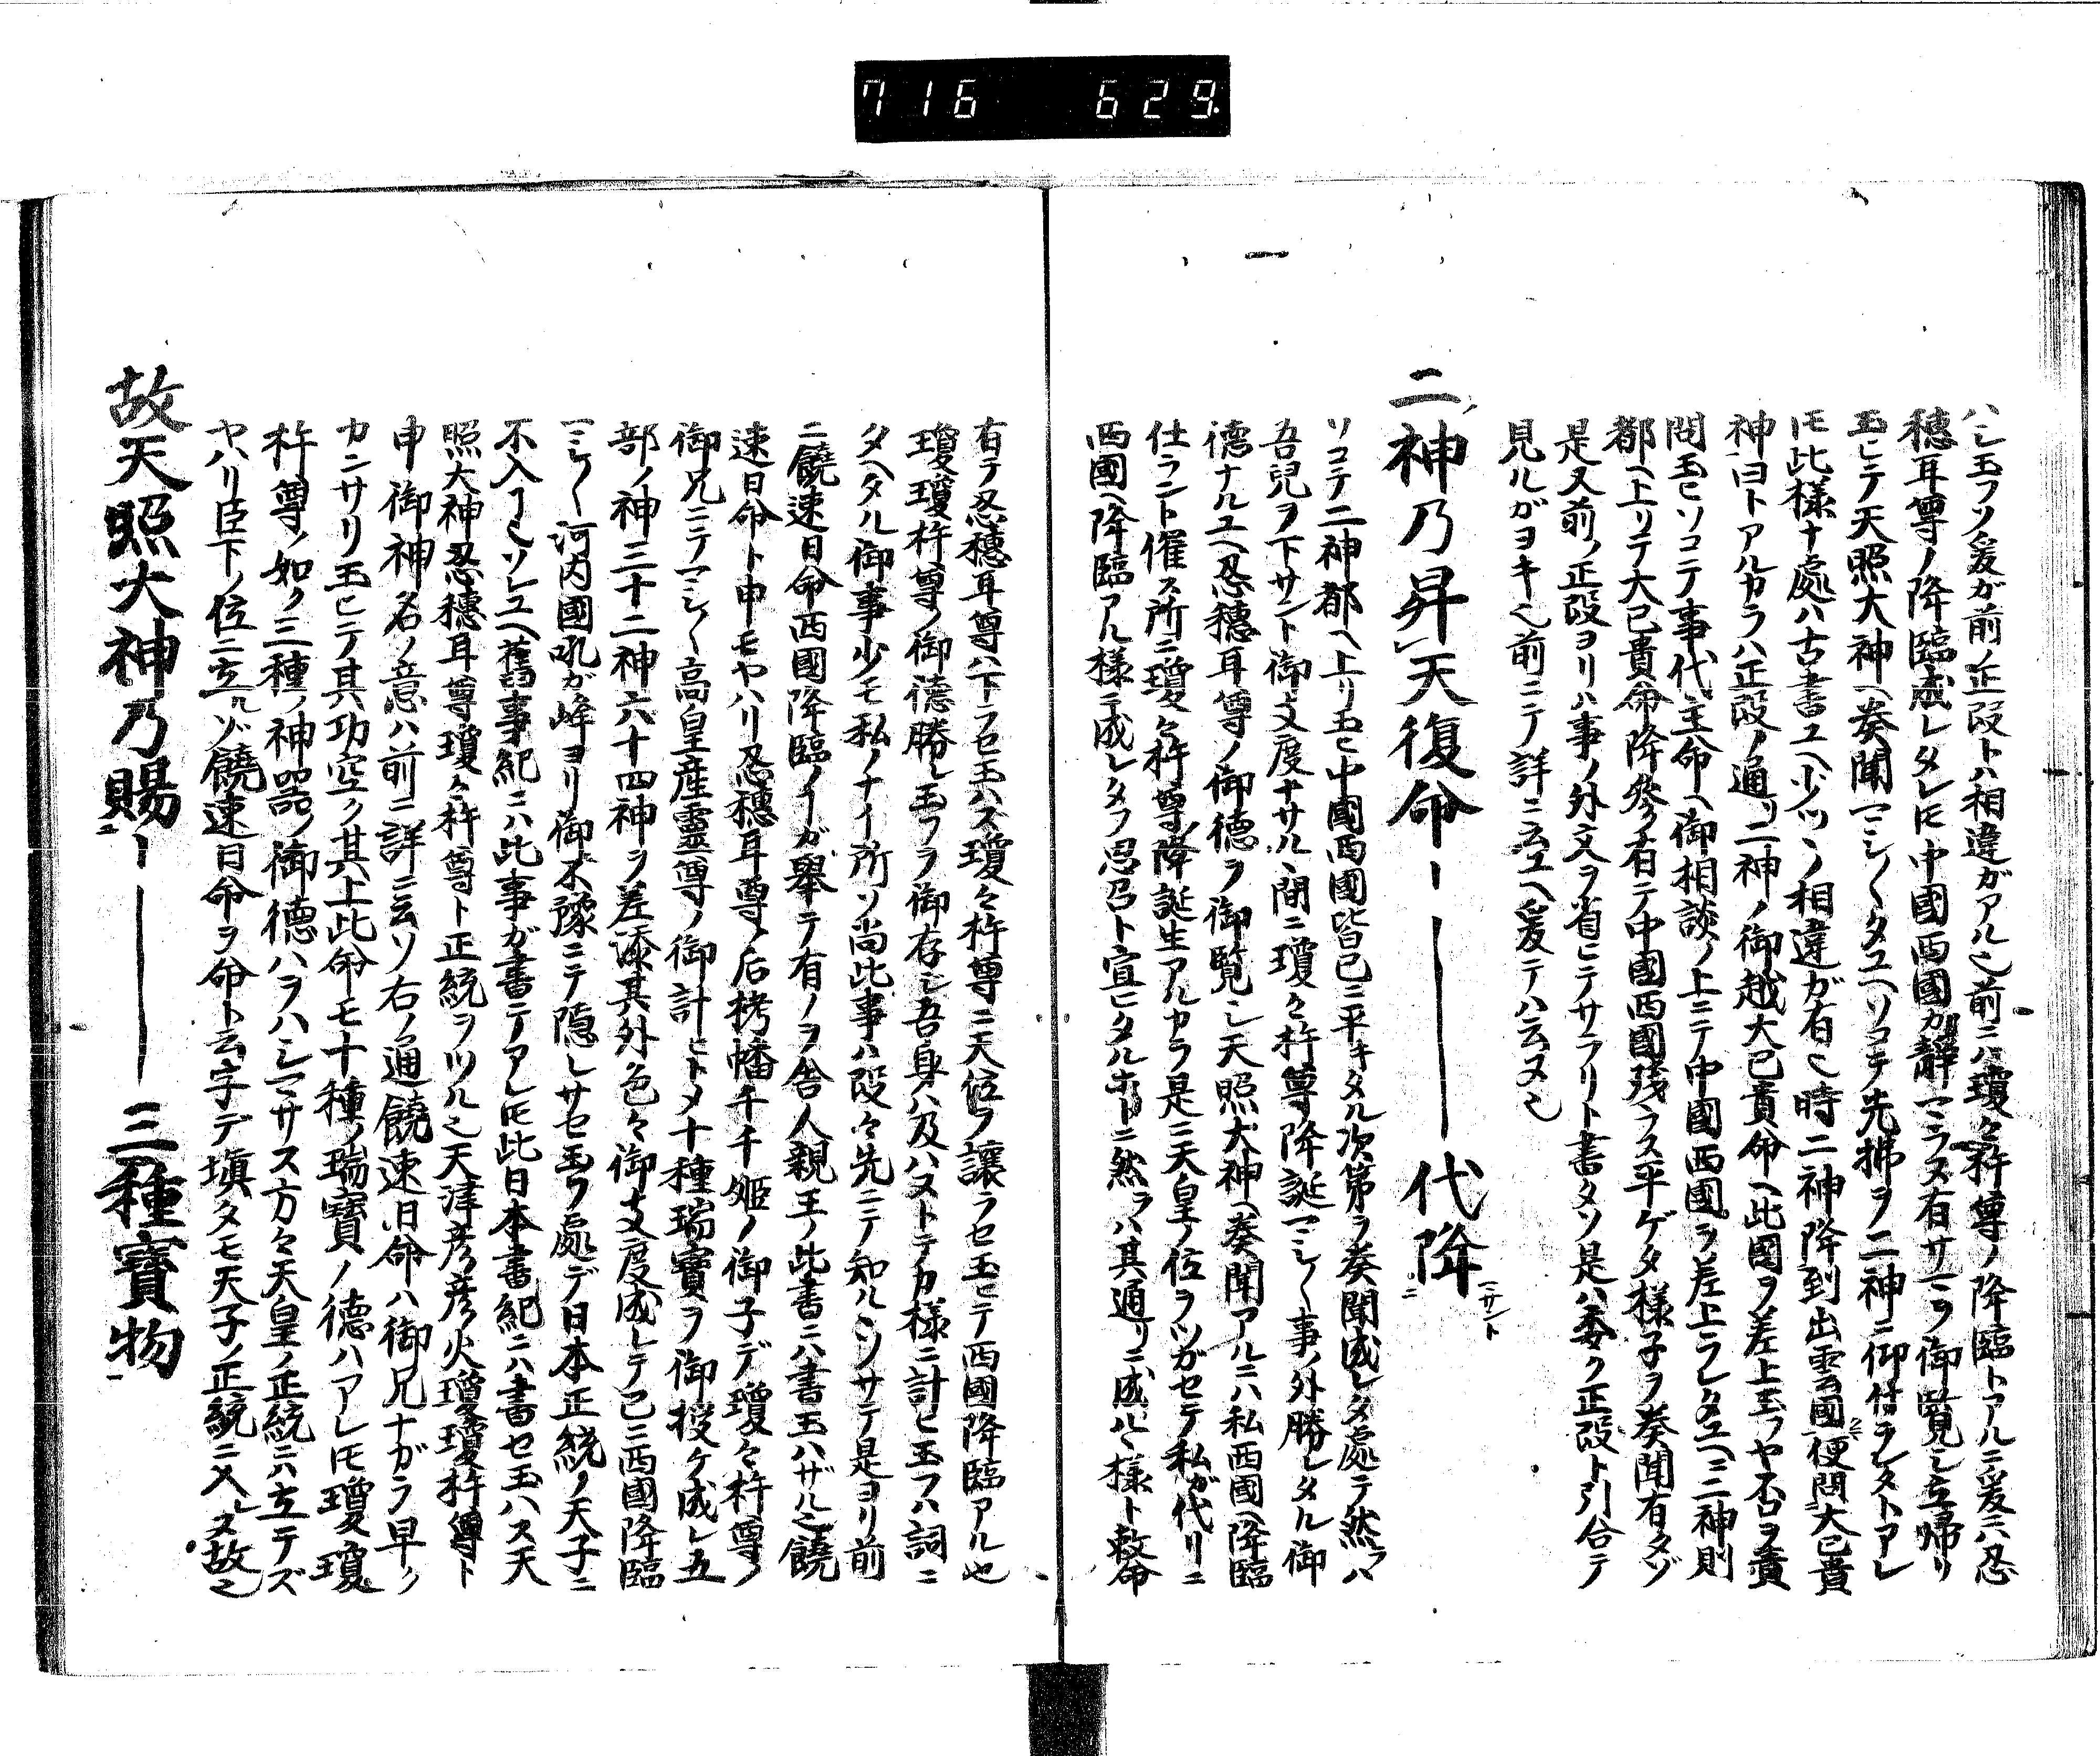 716 629.
ハシ玉フソ爰ガ前ノ正段トハ相違ガアル也前ニハ瓊々杵尊ノ降臨トアルニ爰ニハ忍
穗耳尊ノ降臨成レタレ𪜈中國西國ガ静マラス有サマヲ御覧シ立帰リ
玉ヒテ天照大神ヘ奏聞マシ〱タユヘソコテ先拂ヲ二神ニ仰付ラレタトアレ
𪜈此様ナ處ハ古書ユヘ少ツヽノ相違ガ有也時二神降到出雲國便問大己貴
神曰トアルカラハ正段ノ通リ二神ノ御越大己貴命ヘ此國ヲ差上玉フヤ否ヲ責
問玉ヒソコテ事代主命ヘ御相談ノ上ニテ中國西國ヲ差上ラレタユヘ二神則
都ヘ上リテ大己貴命降参有テ中國西國残ラス平ゲタ様子ヲ奏聞有タゾ
是又前ノ正段ヨリハ事ノ外文ヲ省ヒテサラリト書タソ是ハ委ク正段ト引合テ
見ルガヨキ也前ニテ詳ニ云ユヘ爰テハ云ヌ也
二神乃昇天復命ーー代降ニ マサント
ソコテ二神都ヘ上リ玉ヒ中國西國皆已ニ平キタル次第ヲ奏聞成レタ處テ然ラハ
吾兒ヲ下サント御支度ナサルヽ間ニ瓊々杵尊降誕マシ〱事ノ外勝レタル御
德ナルユヘ忍穗耳尊ノ御德ヲ御覧シ天照大神ヘ奏聞アルニハ私西國ヘ降臨
仕ラント催ス所ニ瓊々杵尊降誕生アルカラ是ニ天皇ノ位ヲツガセテ私ガ代リニ
西國ヘ降臨アル様ニ成レタフ思召ト宣ヒタルホトニ然ラハ其通リニ成ルヽ様ト敕命
有テ忍穗耳尊ハ下ラセ玉ハス瓊々杵尊ニ天位ヲ讓ラセ玉ヒテ西國降臨アル也
瓊瓊杵尊ノ御德勝レ玉フヲ御存シ吾身ハ及ハストテカ様ニ計ヒ玉フハ詞ニ
タヘタル御事少モ私ノナイ所ソ尚此事ハ段々先ニテ知ルヽソサテ是ヨリ前
ニ饒速日命西國降臨ノヿガ舉テ有ノヲ舎人親王ノ此書ニハ書玉ハザル也饒
速日命ト申モヤハリ忍穗耳尊ノ后栲幡千千姫ノ御子デ瓊々杵尊ノ
御兄ニテマシ〱高皇産靈尊ノ御計ヒトメ十種瑞寶ヲ御授ケ成レ五
部ノ神三十二神六十四神ヲ差添其外色々御支度成レテ已ニ西國降臨
マシ〱河内國吼ガ峰ヨリ御不豫ニテ隠レサセ玉フ處デ日本正統ノ天子ニ
不入ヿ也ソレユヘ舊事紀ニハ此事ガ書テアレ𪜈此日本書紀ニハ書セ玉ハス天
照大神忍穗耳尊瓊々杵尊ト正統ヲツル也天津彦彦火瓊瓊杵尊ト
申御神名ノ意ハ前ニ詳ニ云ソ右ノ通饒速日命ハ御兄ナガラ早ク
カニサリ玉ヒテ其功空ク其上此命モ十種ノ瑞寶ノ德ハアレ𪜈瓊瓊
杵尊ノ如ク三種ノ神器ノ御德ハヲハシマサス方々天皇ノ正統ニハ立テズ
ヤハリ臣下ノ位ニ立ルゾ饒速日命ヲ命ト云字デ塡タモ天子ノ正統ニ入レヌ故也
故天照大神乃賜ニーー三種寶物